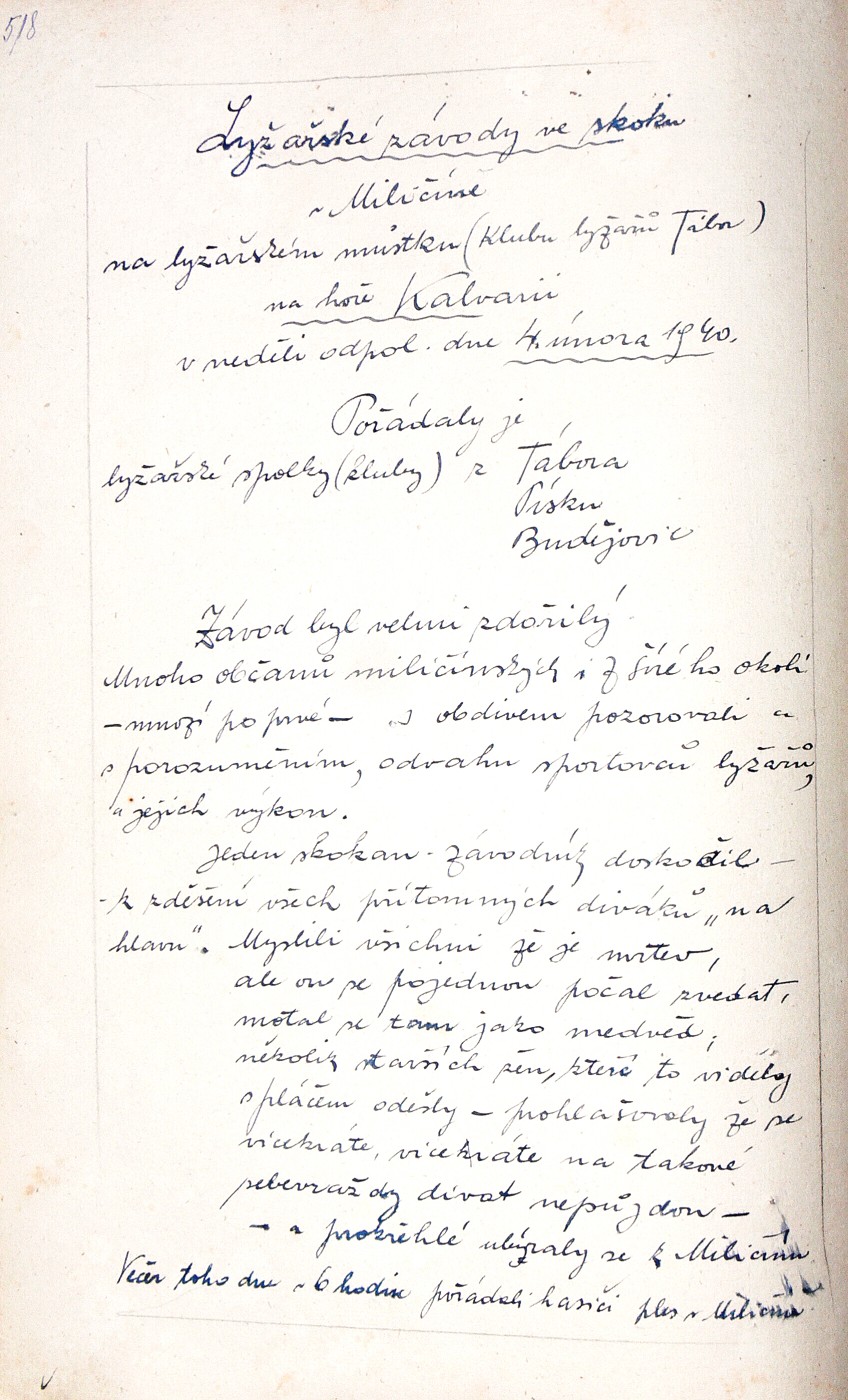 518
Lyžařské závody ve skoku
v Miličíně
na lyžařském můstku (Klubu lyžařů Tábor)
na hoře Kalvarii
v neděli odpol. dne 4. února 1940.
Pořádaly je
lyžařské spolky (kluby) z Tábora
Písku
Budějovic
Závod byl velmi zdařilý.
Mnoho občanů miličínských i z šírého okolí
– mnozí po prvé – s obdivem pozorovali a
s porozuměním, odvahu sportovců lyžařů,
a jejich výkon.
Jeden skokan - závodník doskočil –
- k zděšení všech přítomných diváků „na
hlavu“. Myslili všichni že je mrtev,
ale on se pojednou počal zvedat,
motal se tam jako medvěd;
několik starších žen, které to viděly
s pláčem odešly – prohlašovaly že se
vícekráte, vícekráte na takové
sebevraždy dívat nepůjdou –
– a prokřehlé ubíraly se k Miličínu
Večer toho dne v 6 hodin pořádali hasiči ples v Miličíně